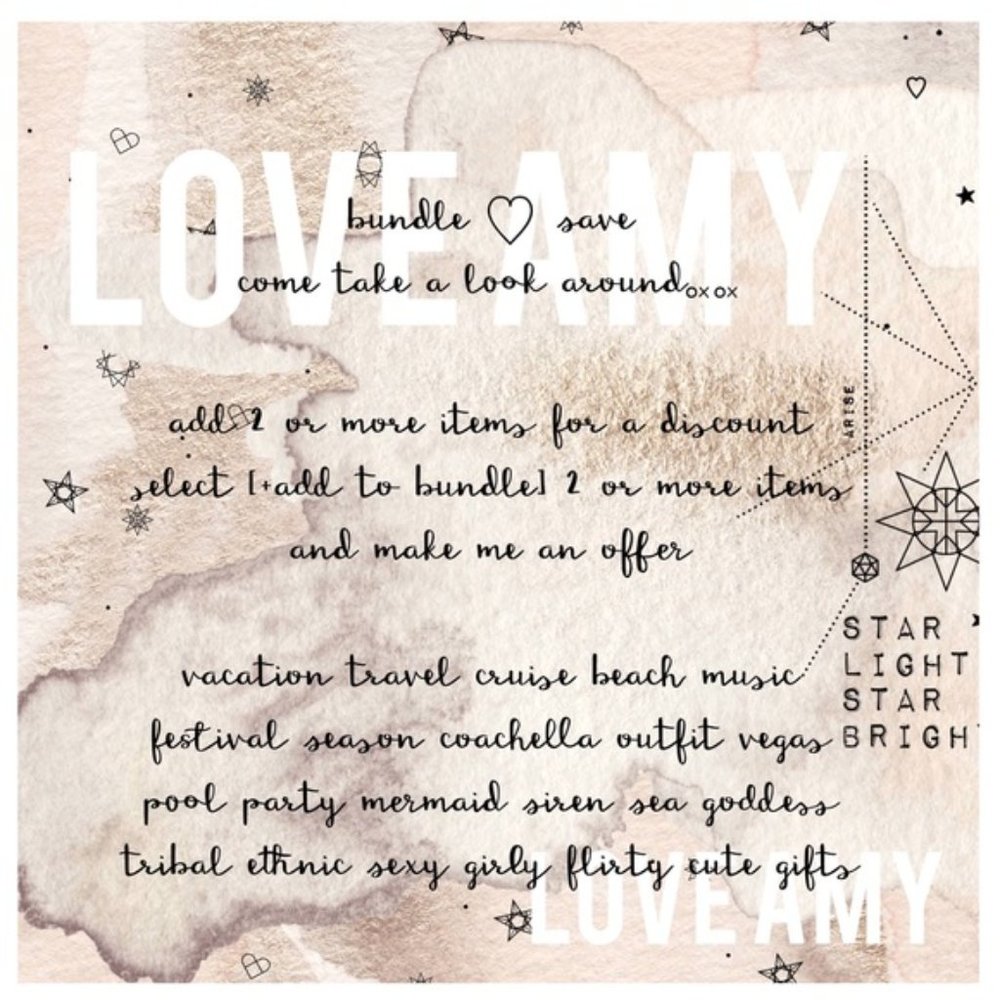 LOVE AMY
bundle ♡ save
come take a look around oxox
add 2 or more items for a discount
select [+add to bundle] 2 or more items
and make me an offer
ARISE
vacation travel cruise beach music
festival season coachella outfit vegas
pool party mermaid siren sea goddess
tribal ethnic sexy girly flirty cute gifts
STAR
LIGHT
STAR
BRIGH
LOVE AMY